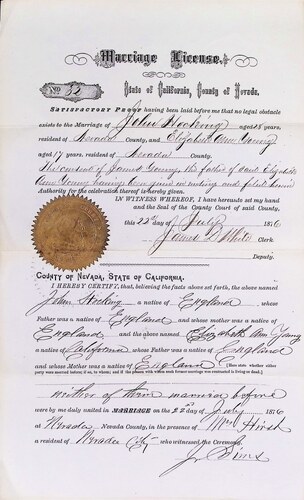 Marriage License.
No 32 State of California, County of Nevada.
SATISFACTORY PROOF having been laid before me that no legal obstacle
exists to the Marriage of John Hocking aged 28 years,
resident of Nevada County, and Elizabeth Ann Genny
aged 17 years, resident of Nevada County.
The consent of James Genny the father of said Elizabeth
Ann Genny having been given in writing and filed herein
Authority for the celebration thereof is hereby given.
IN WITNESS WHEREOF, I have hereunto set my hand
and the Seal of the County Court of said County,
this 22d day of July 1876
James D. White Clerk.
Deputy.
COUNTY OF NEVADA, STATE OF CALIFORNIA.
I HEREBY CERTIFY, that, believing the facts above set forth, the above named
John Hocking a native of England whose
Father was a native of England and whose mother was a native of
England and the above named Elizabeth Ann Genny
a native of California whose Father was a native of England
and whose Mother was a native of England [Here state whether either
party were married before; if so, to whom; and if the person with whom such former marriage was contracted is living or dead.]
neither of them married before
were by me duly united in MARRIAGE on the 22d day of July 1876
at Nevada Nevada County, in the presence of Mrs Hirsh
a resident of Nevada City who witnessed the Ceremony.
J. Sims